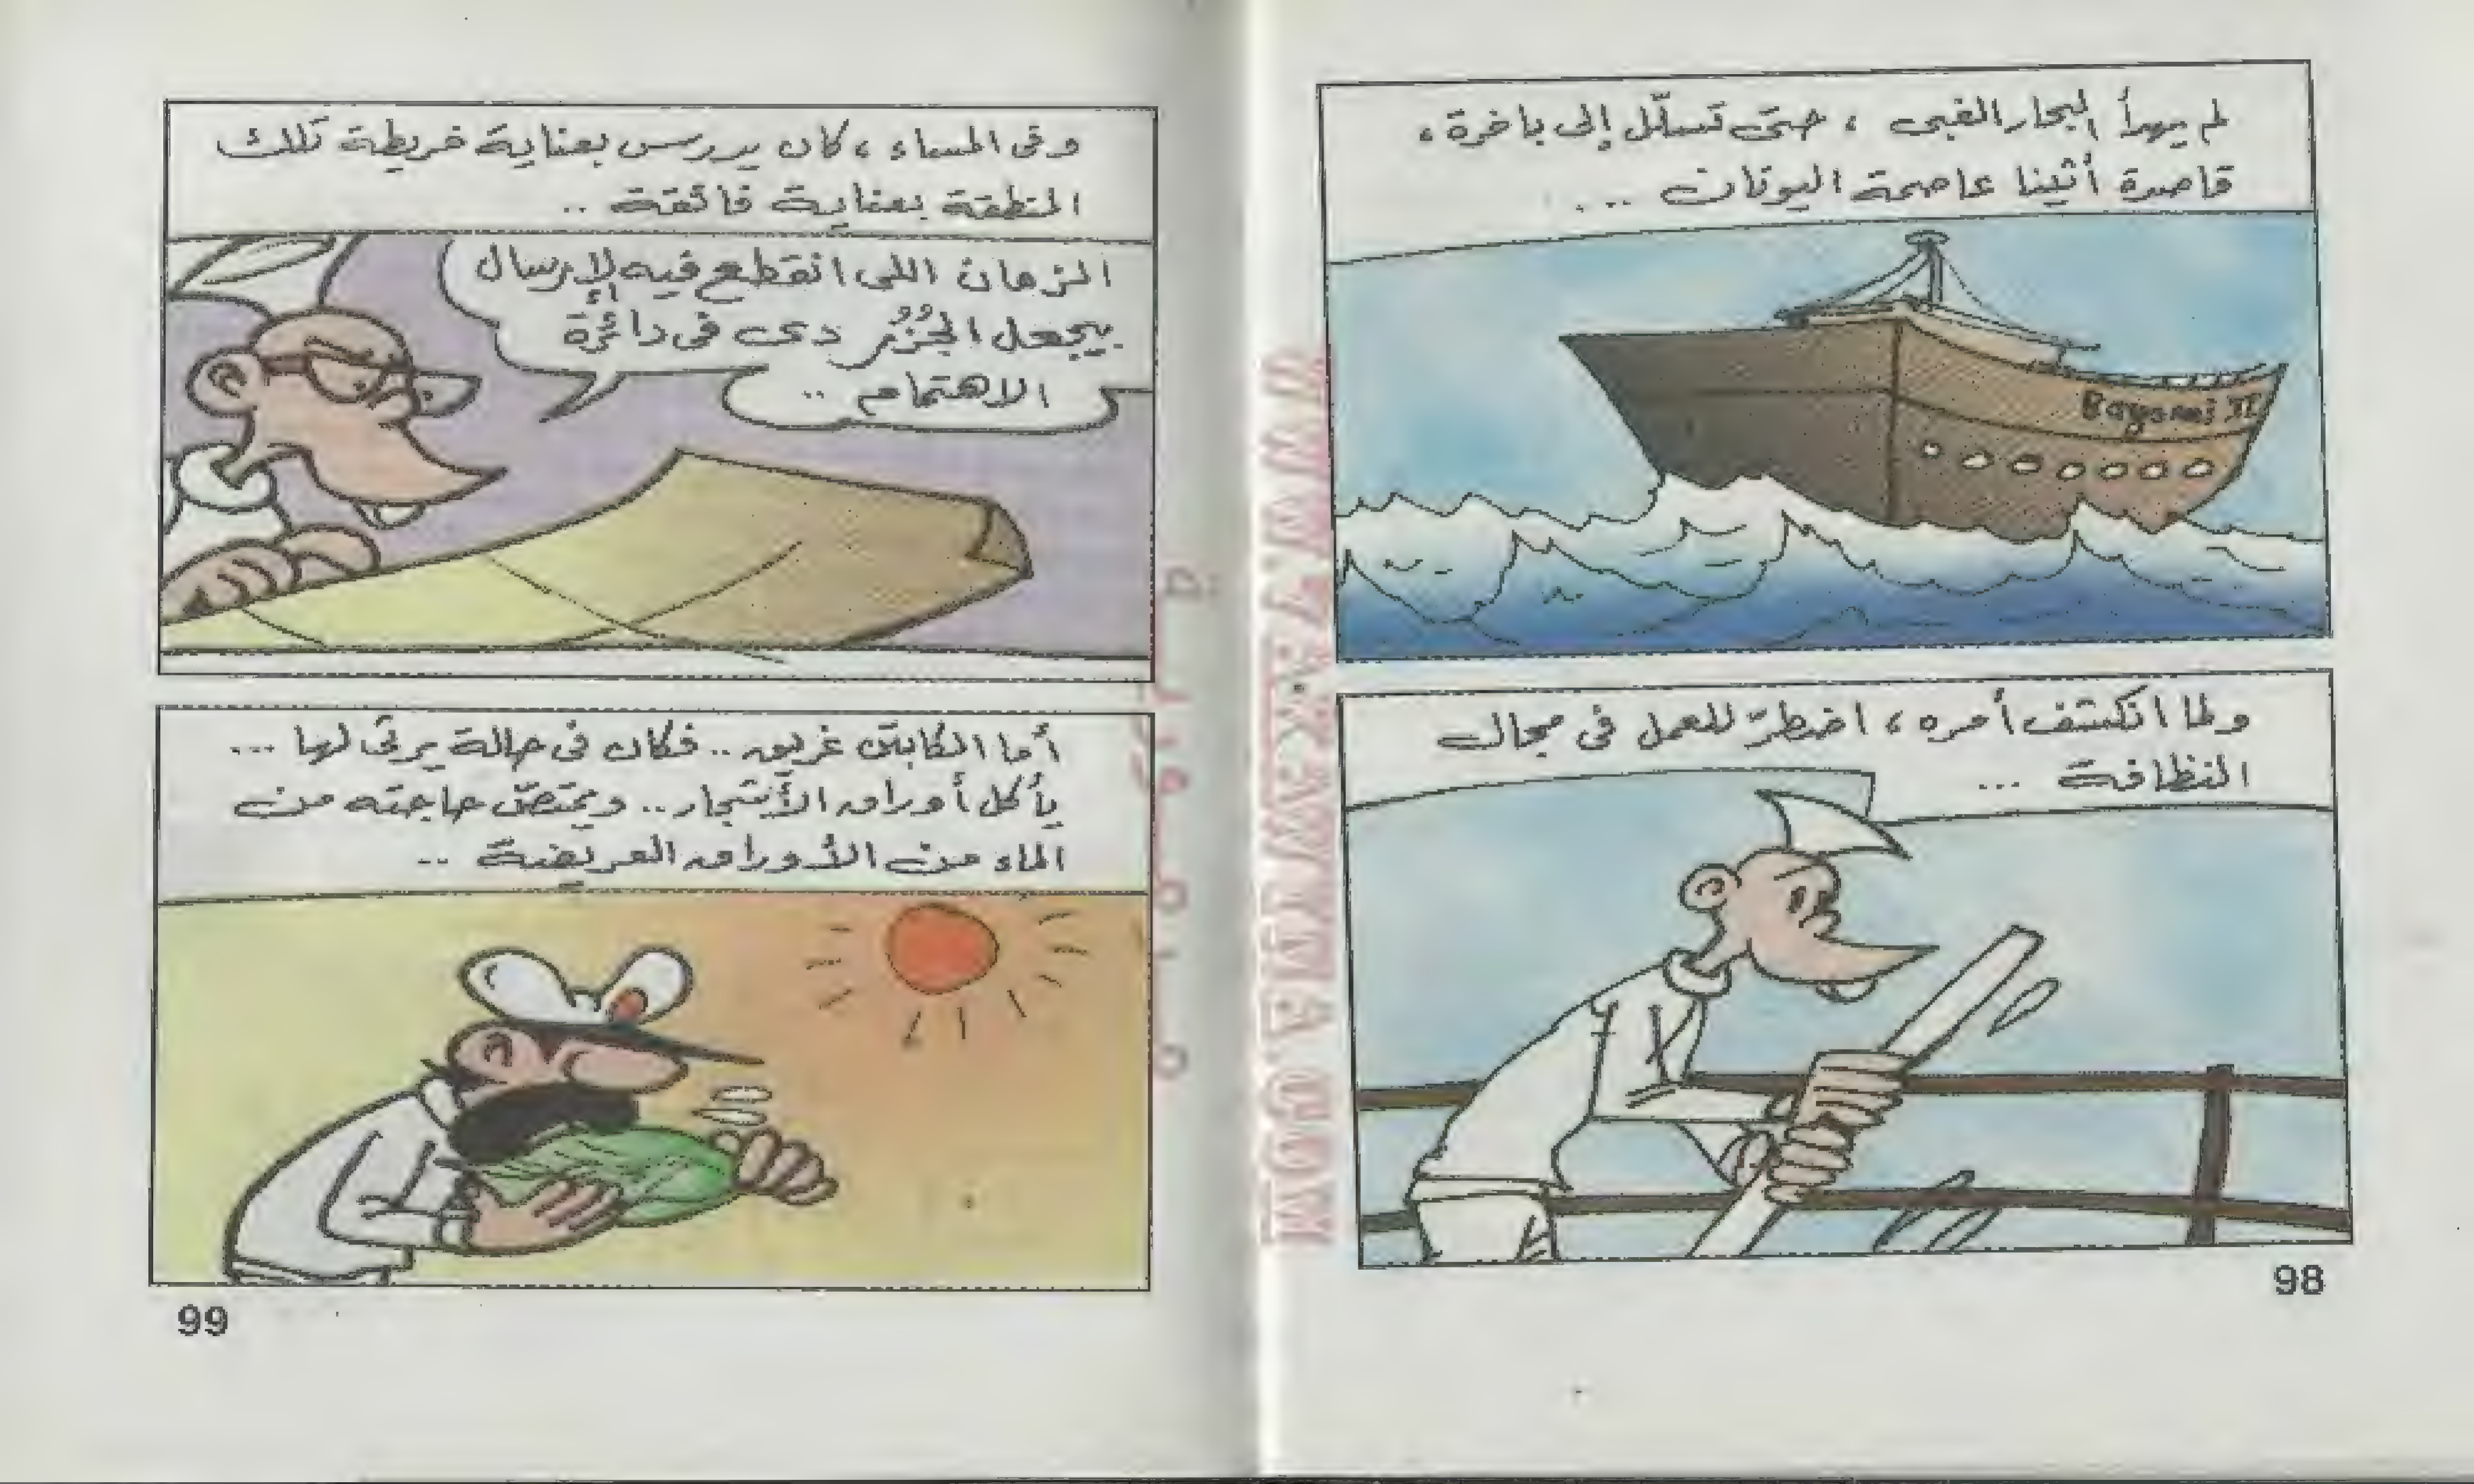 لم يهدأ البحار الغبى ، حتى تسلّل إلى باخرة ،
قاصدة أثينا عاصمة اليونان ...
Bayoumi XI
ولما انكشف أمره ، اضطرّ للعمل فى مجال
النظافة ...
98
وفى المساء ، كان يدرس بعناية خريطة تلك
المنطقة بعناية فائقة ..
الزمان اللى انقطع فيه الإرسال
بيجعل الجُزُر دى فى دائرة
الاهتمام ..
أما الكابتن غريق .. فكان فى حالة يرثى لها ...
يأكل أوراق الأشجار .. ويمتصّ حاجته من
الماء من الأوراق العريضة ..
99